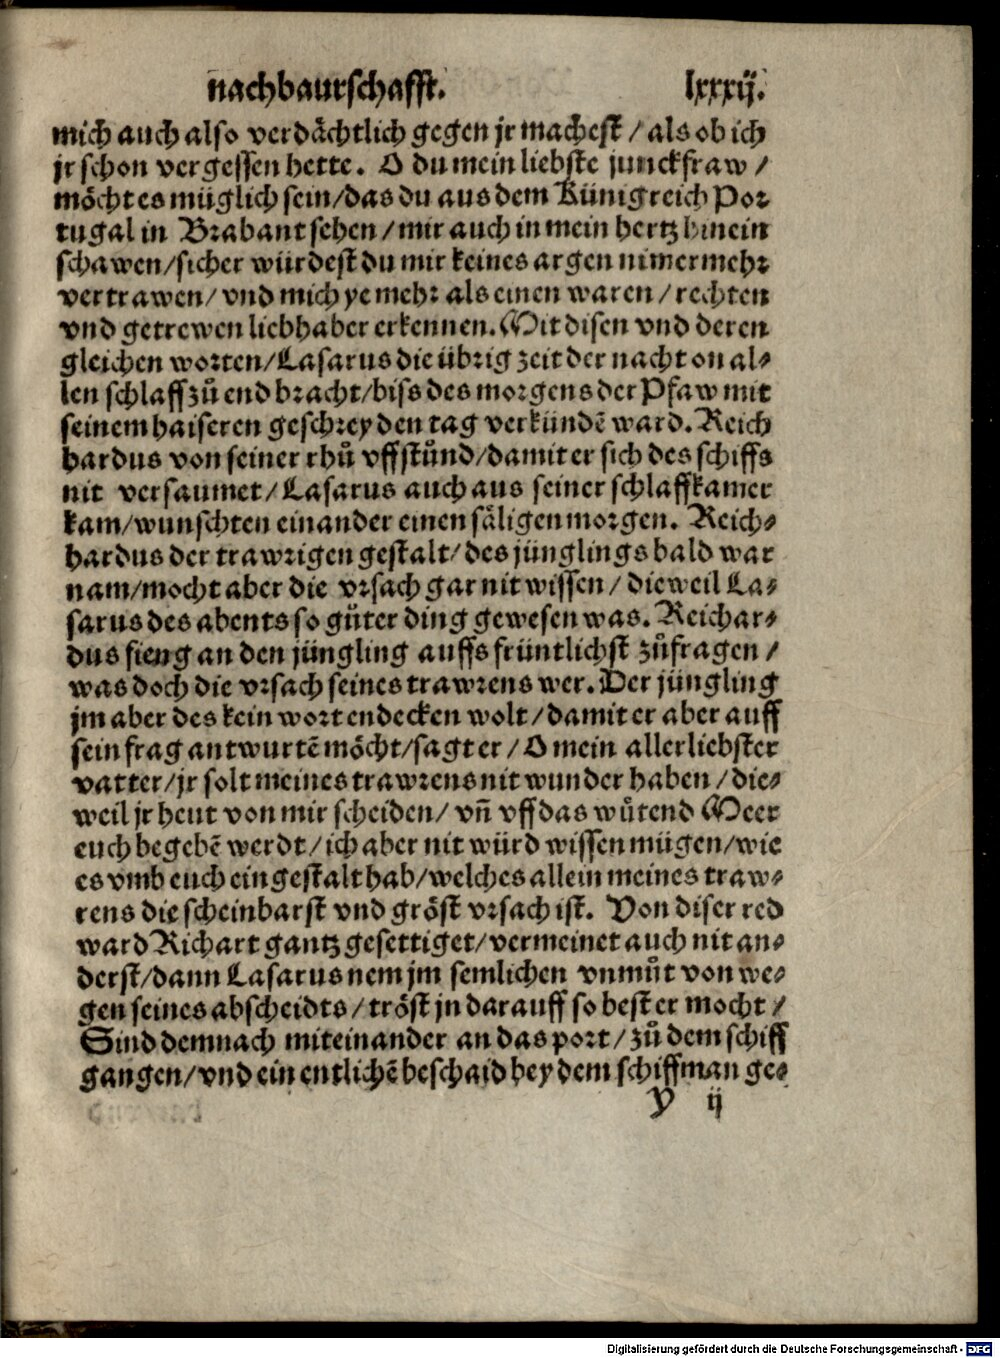 nachbaurschafft. lxxxij.
mich auch also verdächtlich gegen jr machest / als ob ich
jr schon vergessen hette. O du mein liebste junckfraw /
möcht es müglich sein / das du aus dem Künigreich Por⸗
tugal in Brabant sehen / mir auch in mein hertz hinein
schawen / sicher würdest du mir keines argen nimermehr
vertrawen / vnd mich ye mehr als einen waren / rechten
vnd getrewen liebhaber erkennen. Mit disen vnd deren
gleichen worten / Lasarus die übrig zeit der nacht on al⸗
len schlaff zů end bracht / biss des morgens der Pfaw mit
seinem haiseren geschrey den tag verkündē ward. Reich
hardus von seiner rhů vffstůnd / damit er sich des schiffs
nit versaumet / Lasarus auch aus seiner schlaffkamer
kam / wunschten einander einen säligen morgen. Reich⸗
hardus der trawrigen gestalt / des jünglings bald war
nam / mocht aber die vrsach gar nit wissen / dieweil La⸗
sarus des abents so gůter ding gewesen was. Reichar⸗
dus fieng an den jüngling auffs früntlichst zůfragen /
was doch die vrsach seines trawrens wer. Der jüngling
jm aber des kein wort endecken wolt / damit er aber auff
sein frag antwurtē möcht / sagt er / O mein allerliebster
vatter / jr solt meines trawrens nit wunder haben / die⸗
weil jr heut von mir scheiden / vñ vff das wůtend Meer
euch begebē werdt / ich aber nit würd wissen mügen / wie
es vmb euch ein gestalt hab / welches allein meines traw⸗
rens die scheinbarst vnd gröst vrsach ist. Von diser red
ward Richart gantz gesettiget / vermeinet auch nit an⸗
derst / dann Lasarus nem jm semlichen vnmůt von we⸗
gen seines abscheidts / tröst jn darauff so best er mocht /
Sind demnach miteinander an das port / zů dem schiff
gangen / vnd ein entlichē beschaid bey dem schiffman ge⸗
Y ij
Digitalisierung gefördert durch die Deutsche Forschungsgemeinschaft - DFG